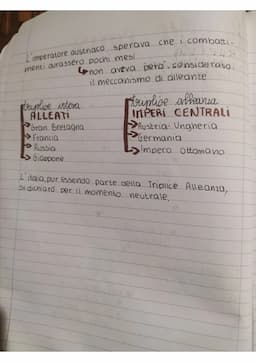 L'imperatore austriaco sperava che i combatti-
menti durassero pochi mesi
↳ non aveva però considerato
il meccanismo di alleanze
triplice intesa
ALLEATI
→ Gran Bretagna
→ Francia
→ Russia
→ Giappone
triplice alleanza
IMPERI CENTRALI
→ Austria-Ungheria
→ Germania
→ Impero Ottomano
L'Italia, pur essendo parte della Triplice Alleanza,
si dichiarò per il momento neutrale.